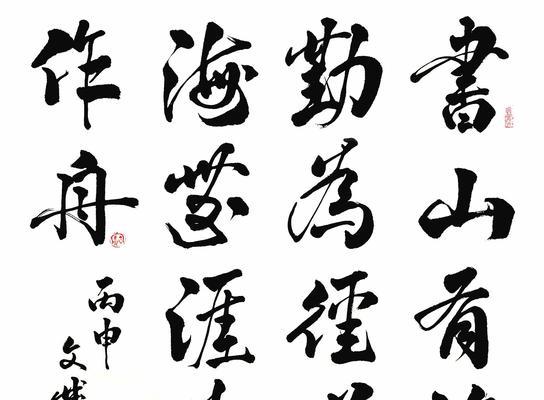 書山有
勤為徑
海無涯
作舟
丙申
文